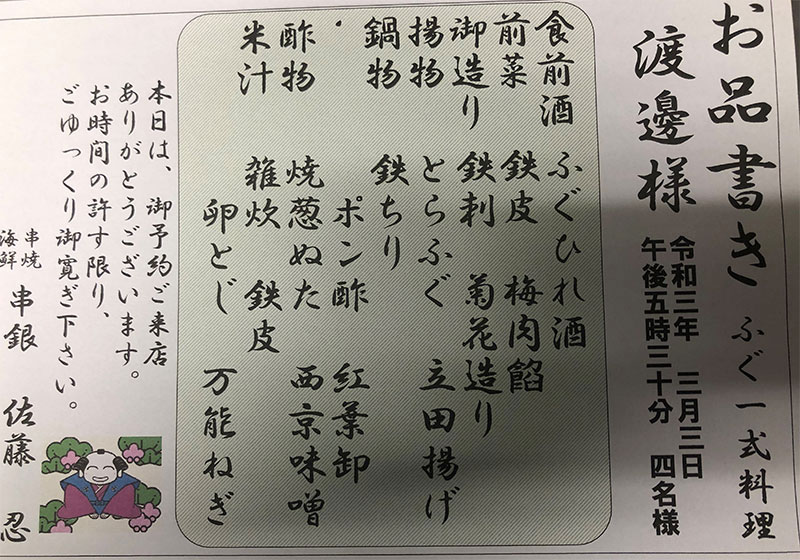 お品書き ふぐ一式料理
渡邊様
令和三年 三月三日
午後五時三十分 四名様
食前酒 ふぐひれ酒
前菜 鉄皮 梅肉餡
御造り 鉄刺 菊花造り
揚物 とらふぐ 立田揚げ
鍋物 鉄ちり
・ ポン酢 紅葉卸
酢物 焼葱ぬた 西京味噌
米汁 雑炊 鉄皮
卵とじ 万能ねぎ
本日は、御予約ご来店
ありがとうございます。
お時間の許す限り、
ごゆっくり御寛ぎ下さい。
串焼
海鮮 串銀 佐藤 忍